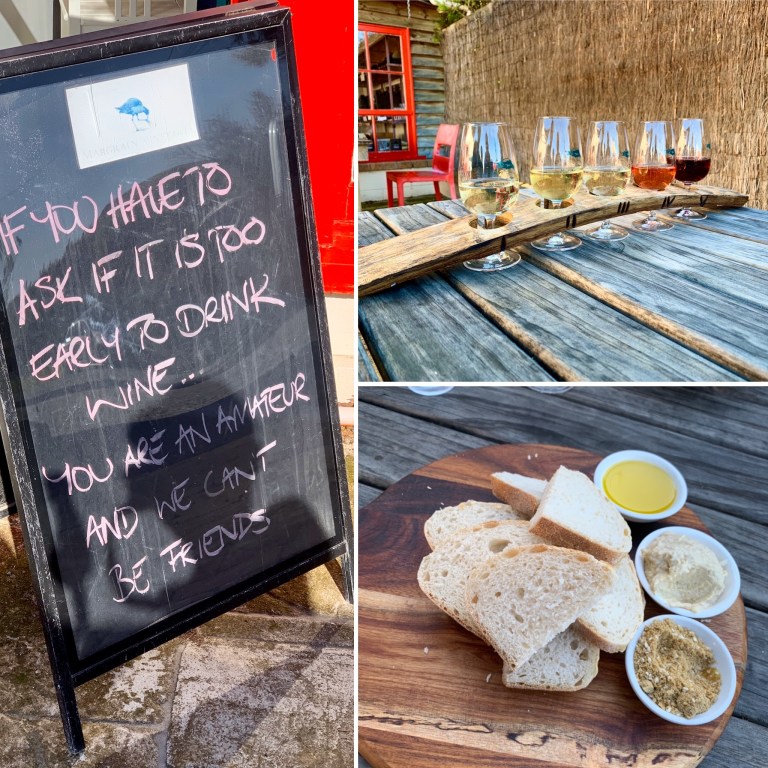 IF YOU HAVE TO
ASK IF IT IS TOO
EARLY TO DRINK
WINE...
YOU ARE AN AMATEUR
AND WE CAN'T
BE FRIENDS
II
III
IV
V